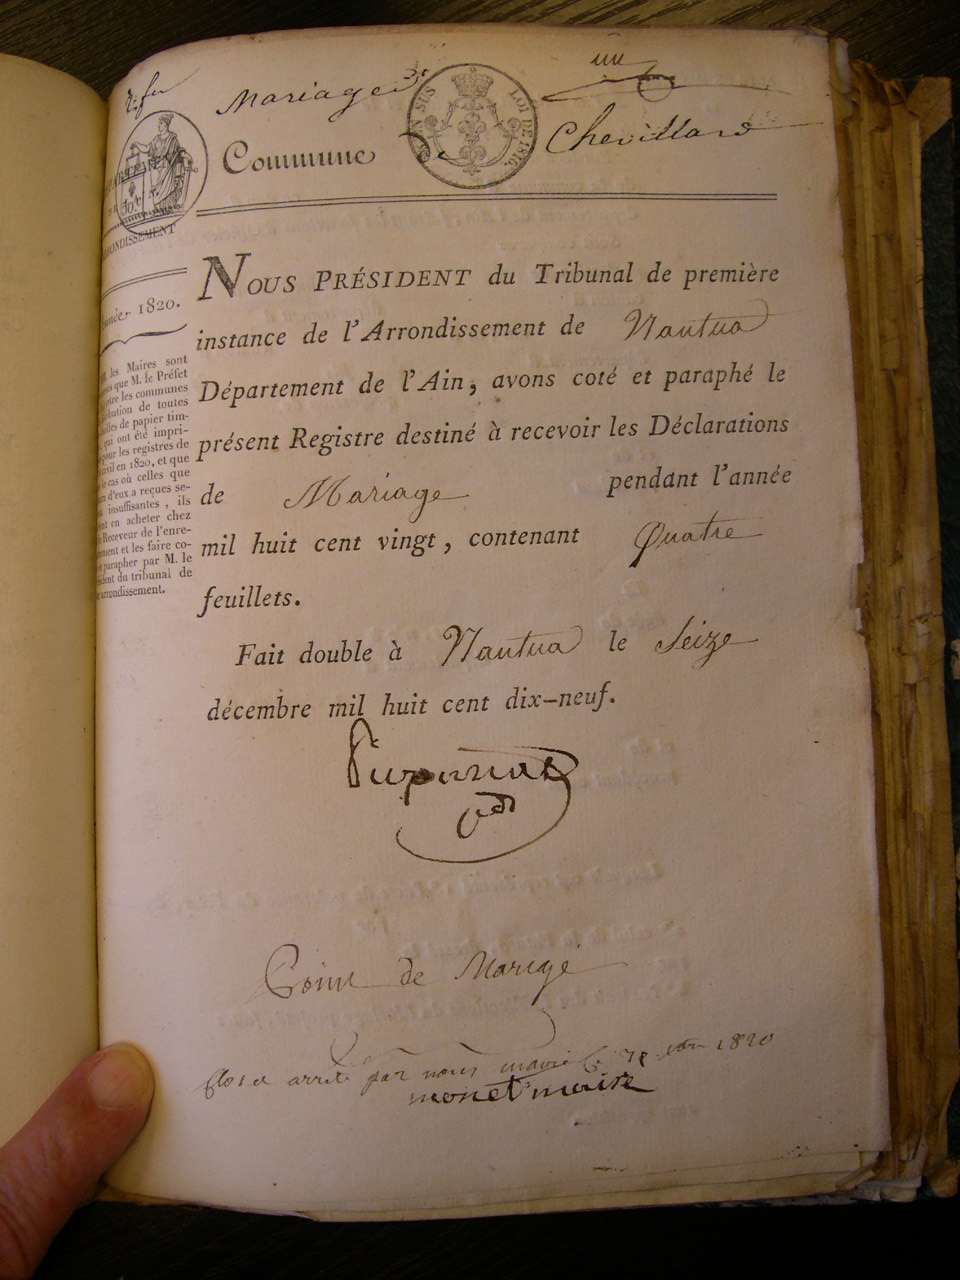 Mariages
un
EN SUS LOI DE 1816.
Commune
Chevillard
ARRONDISSEMENT
Année 1820.
les Maires sont
que M. le Préfet
les communes
de toutes
de papier tim-
qui ont été impri-
pour les registres de
en 1820, et que
le cas où celles que
d'eux a reçues se-
insuffisantes, ils
en acheter chez
Receveur de l'enre-
et les faire co-
parapher par M. le
du tribunal de
arrondissement.
NOUS PRÉSIDENT du Tribunal de première
instance de l'Arrondissement de Nantua
Département de l'Ain, avons coté et paraphé le
présent Registre destiné à recevoir les Déclarations
de Mariage pendant l'année
mil huit cent vingt, contenant Quatre
feuillets.
Fait double à Nantua le Seize
décembre mil huit cent dix-neuf.
Point de Mariage
Clos et arrété par nous maire le 1820
monet maire